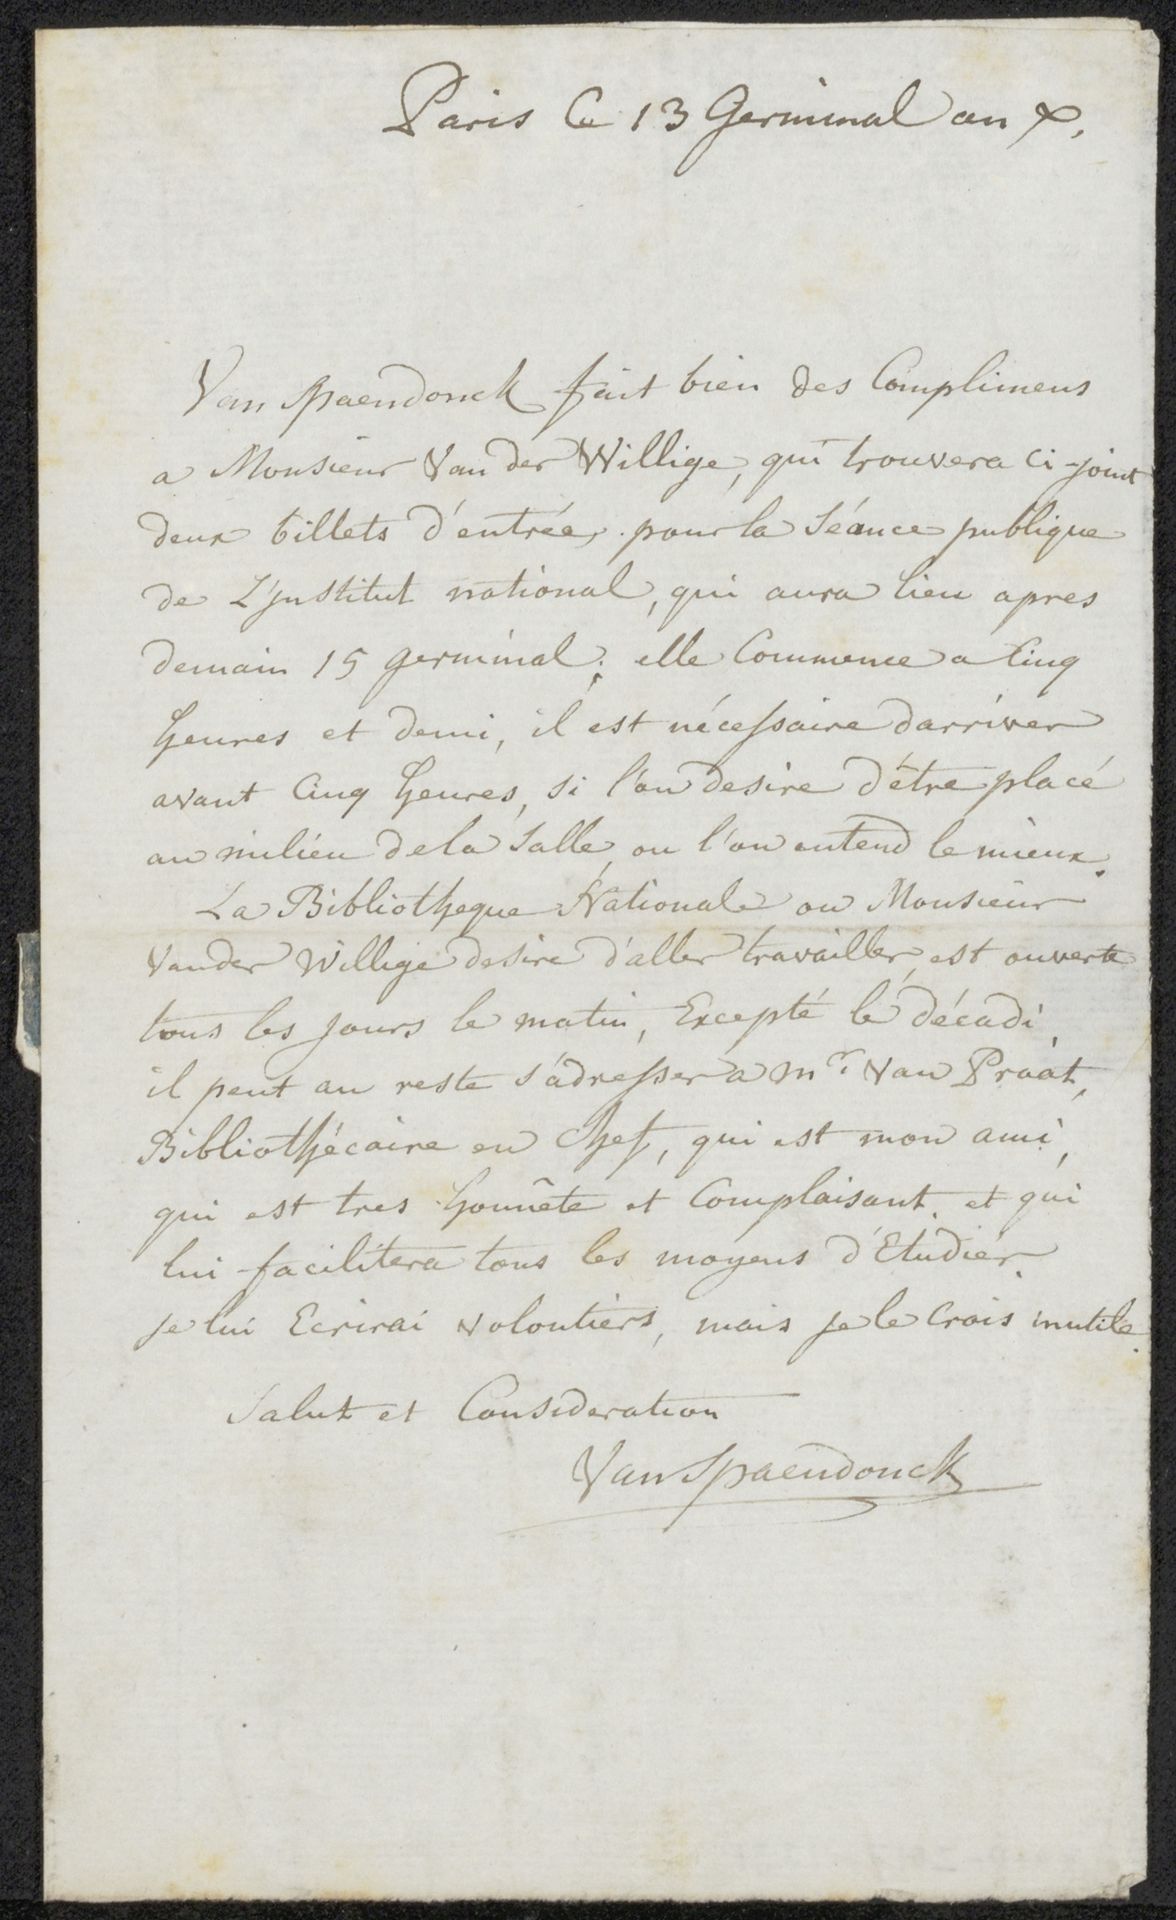 Paris Ce 13 Germinal an X.
Van Spaendonck fait bien des Complimens
a Monsieur Van der Willige, qui trouvera ci-joint
deux billets d'entrée, pour la Séance publique
de L'Institut national, qui aura lieu apres
demain 15 germinal; elle Commence a Cinq
heures et demi, il est nécessaire darriver
avant Cinq heures, si l'on desire d'être placé
au milieu de la Salle, ou l'on entend le mieux.
La Bibliotheque Nationale ou Monsieur
Vander Willige desire d'aller travailler, est ouverte
tous les jours le matin, Excepté le décadi,
il peut au reste s'adresser a Mr. Van Praat,
Bibliothécaire en Chef, qui est mon ami,
qui est tres honnête et Complaisant, et qui
lui facilitera tous les moyens d'Etudier.
je lui Ecrirai volontiers, mais je le Crois inutile.
Salut et Consideration
Van Spaendonck